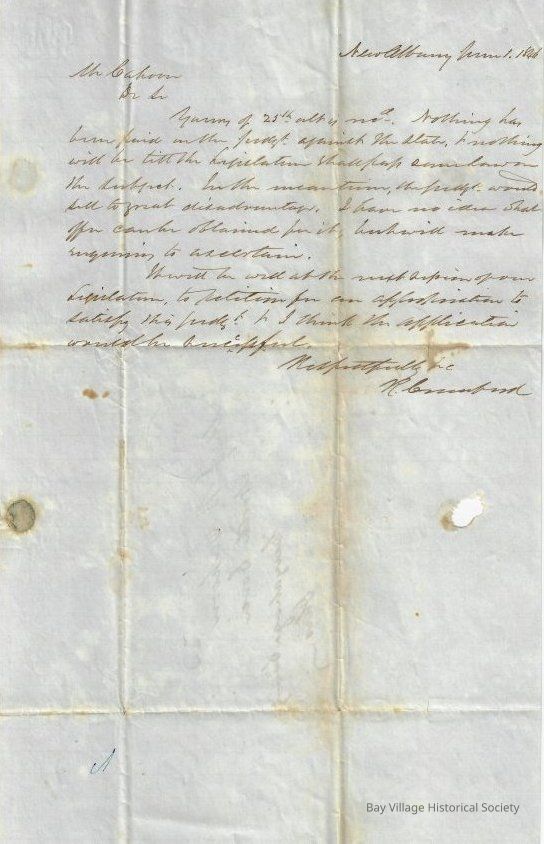 New Albany June 1. 1846
Mr Cahoon
Dr Sir
Yours of 25th ult is recd. Nothing has
been paid on the judgt. against the State, & nothing
will be till the Legislature shall pass some law on
the subject. In the meantime, the judgt. would
sell to great disadvantage. I have no idea what
offer can be obtained for it, but will make
enquiries to ascertain.
It will be well at the next session of our
Legislature, to petition for an appropriation to
satisfy this judgt. & I think the application
would be successful.
Respectfully &c
R. Crawford
Bay Village Historical Society